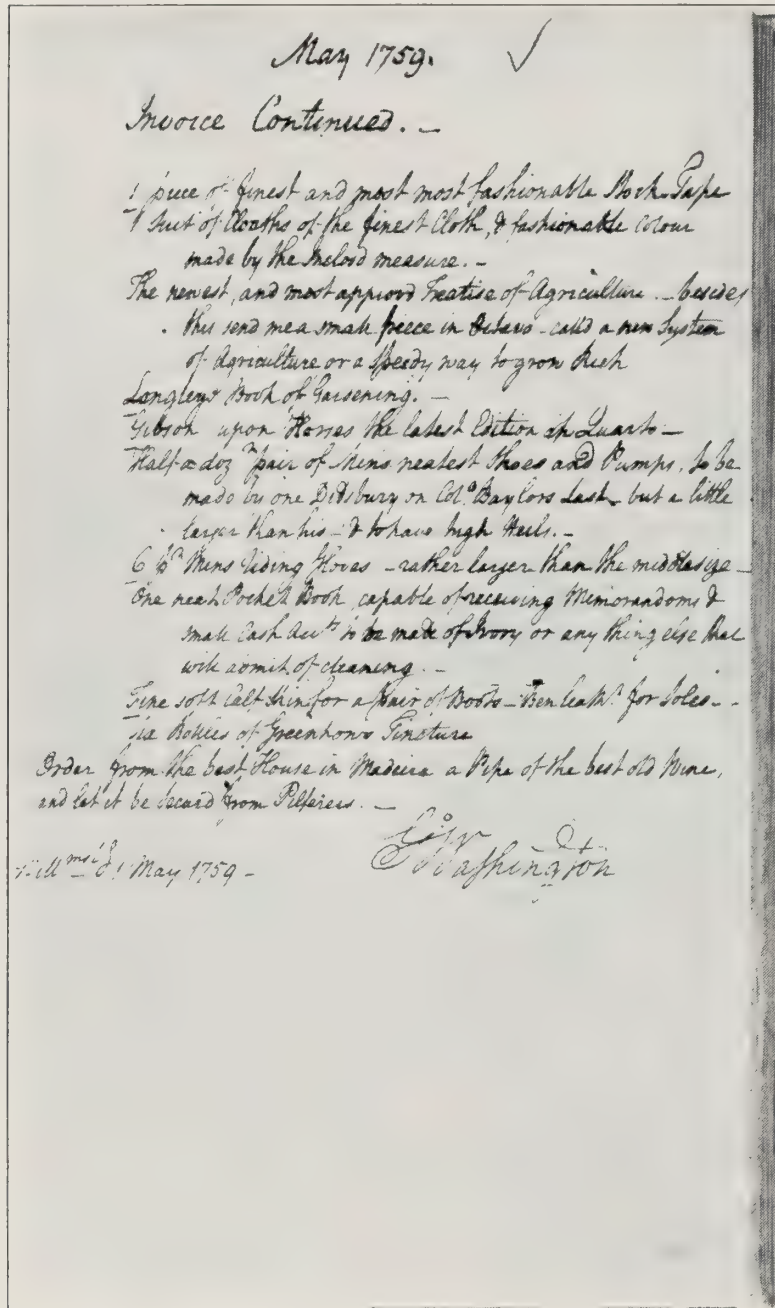 May 1759.
Invoice Continued. —
1 piece of finest and most most fashionable Stock Tape
1 Suit of Cloaths of the finest Cloth, & fashionable colour
made by the Inclosd measure. —
The newest, and most approvd Treatise of Agriculture — besides
this send me a small piece in Octavo - calld a new System
of Agriculture or a Speedy way to grow Rich
Langley's Book of Gardening. —
Gibson upon Horses the latest Edition in Quarto —
Half a doz.n pair of Mens neatest Shoes and Pumps, to be
made by one Didsbury on Colo. Baylors Last — but a little
larger than his — & to have high Heels. —
6 pr Mens riding Gloves — rather larger than the middle size —
One neat Pocket Book, capable of receiving Memorandoms &
small Cash Accts to be made of Ivory or any thing else that
will admit of cleaning. —
Fine soft Calf Skin for a pair of Boots — Ben leathr for Soles. —
Six Bottles of Greenhows Tincture
Order from the best House in Madeira a Pipe of the best old Wine,
and let it be Securd from Pilferers. —
Go: Washington
May 1759 —